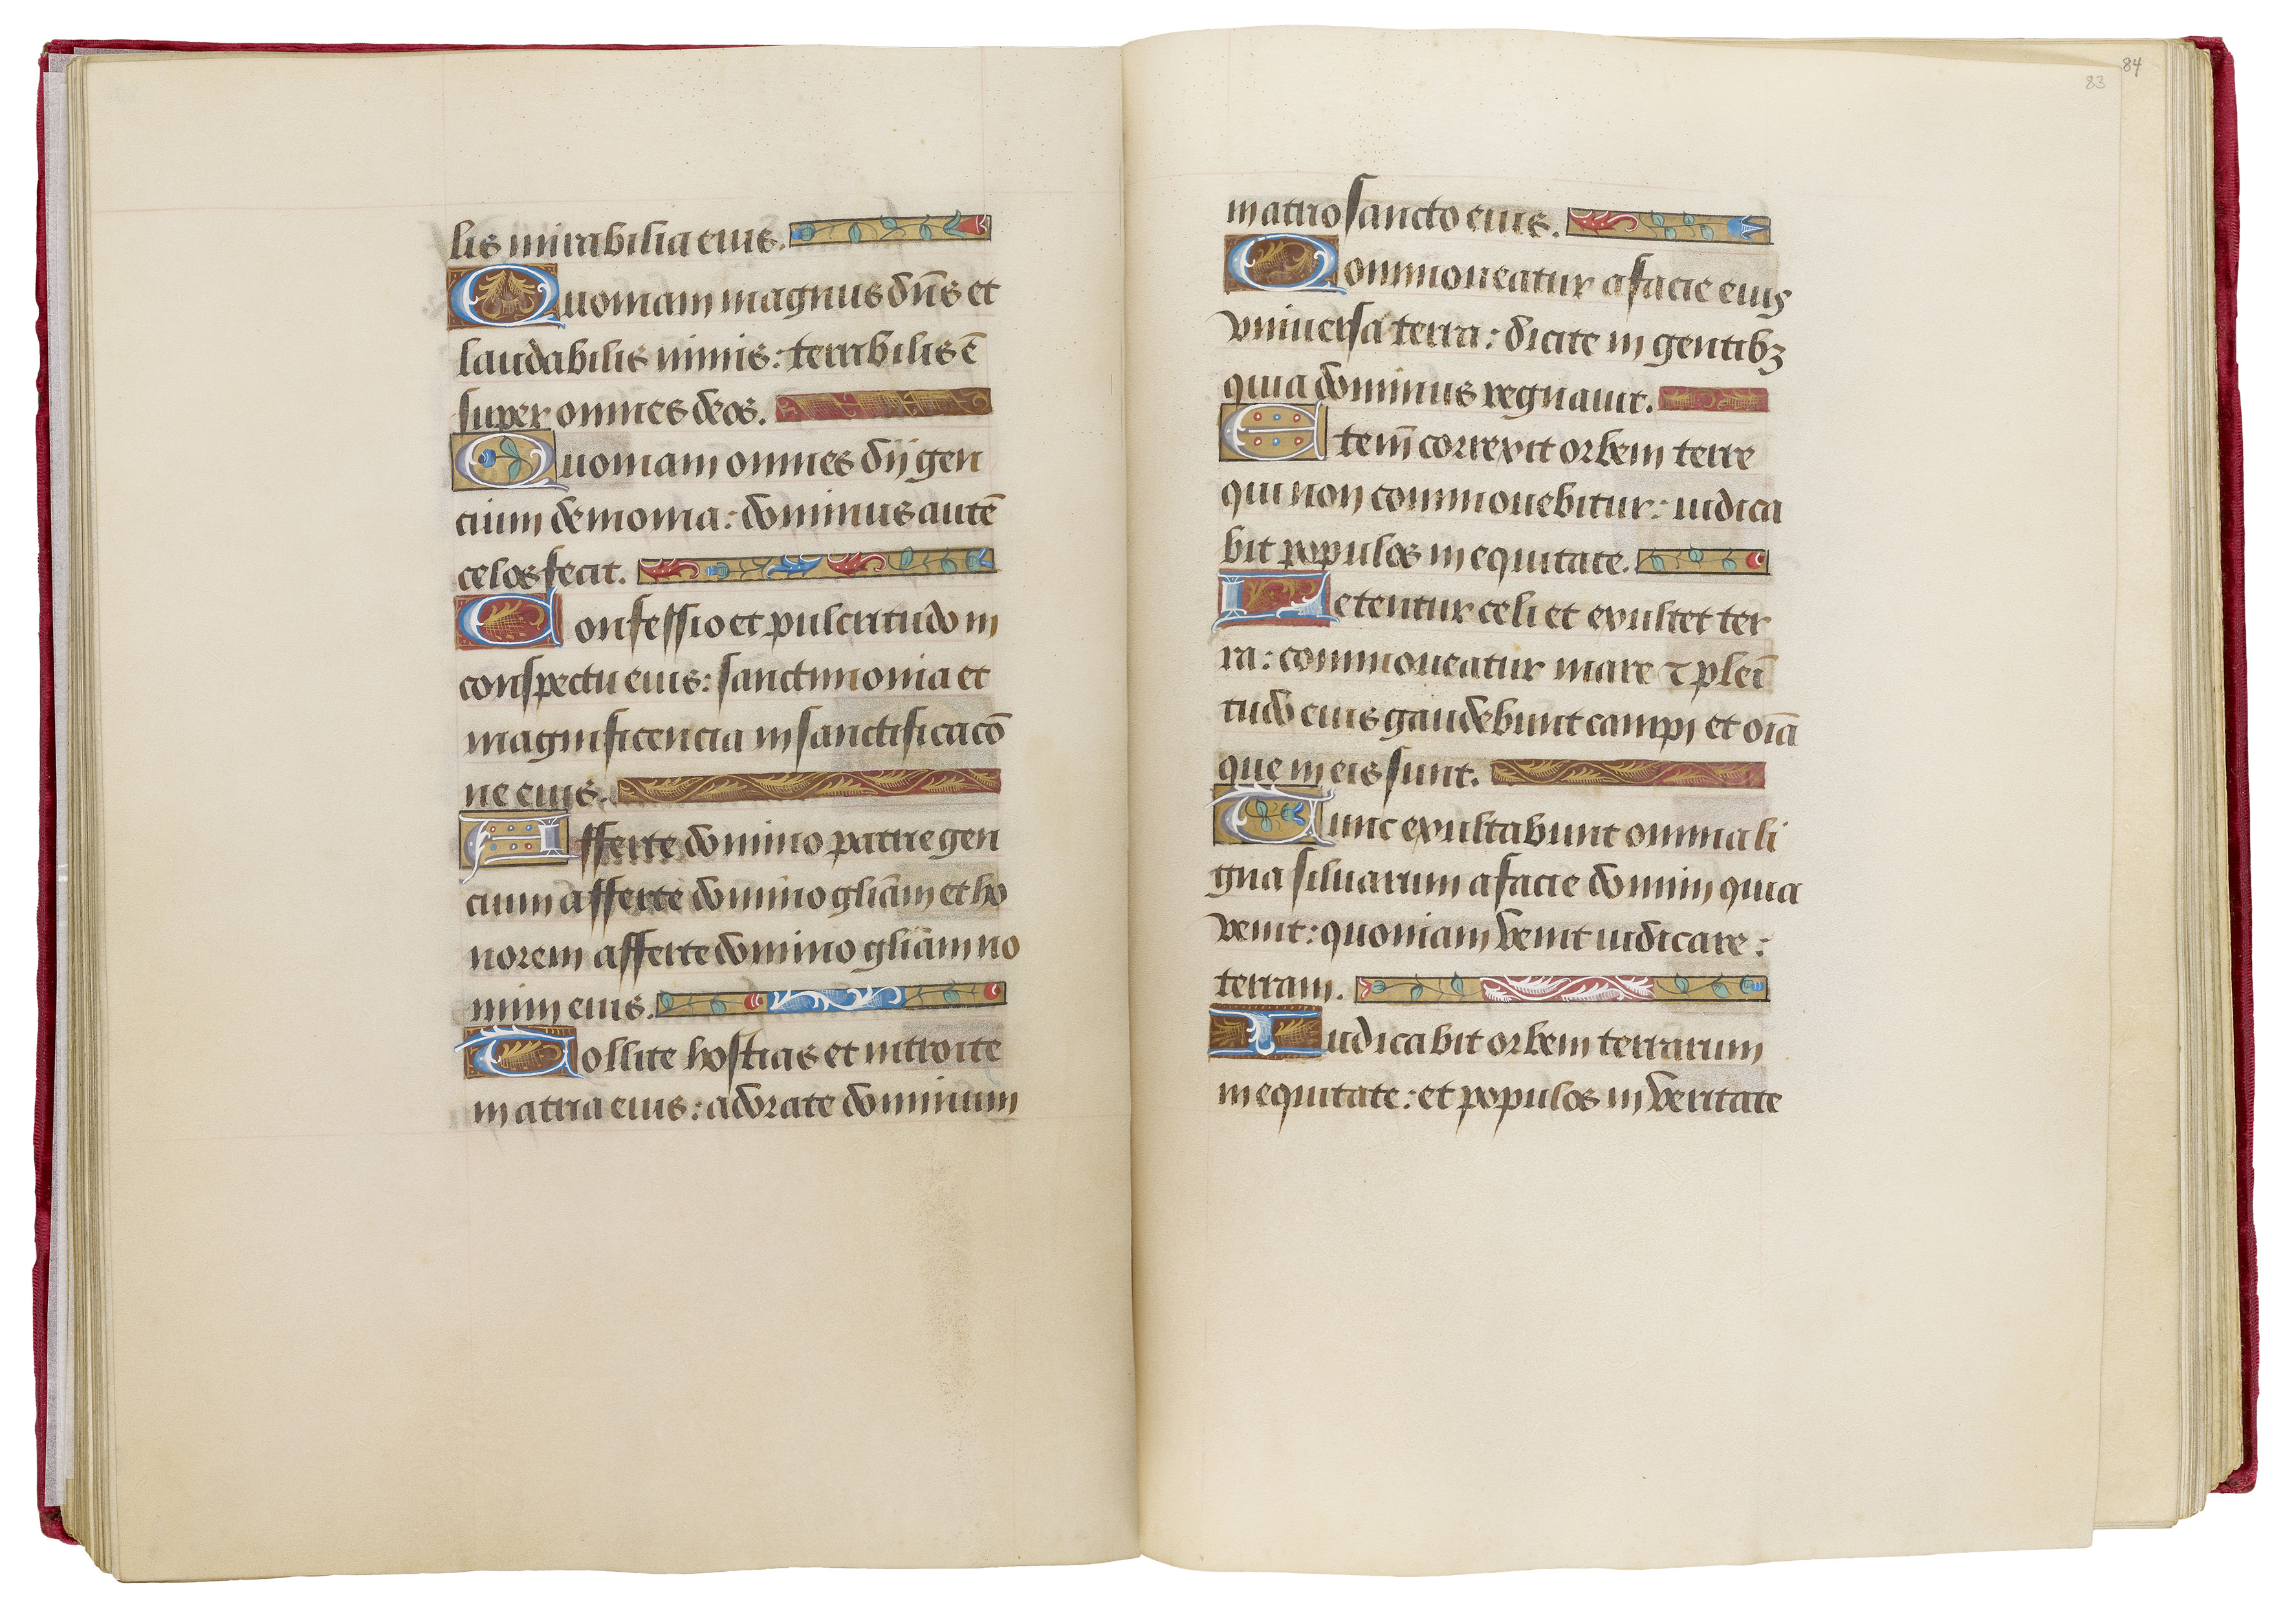 lis mirabilia eius.
Quoniam magnus dn̄s et
laudabilis nimis: terribilis ē
super omnes deos.
Quoniam omnes dij gen
cium demonia: dominus autē
celos fecit.
Confessio et pulcritudo in
conspectu eius: sanctimonia et
magnificencia in sanctificacō
ne eius.
Afferte domino patrie gen
cium afferte domino gliā̄m et ho
norem afferte domino gliām no
mini eius.
Tollite hostias et introite
in atria eius: adorate dominum
84
83
in atrio sancto eius.
Commoueatur a facie eius
vniuersa terra: dicite in gentibꝫ
quia dominus regnauit.
Etem̄ correxit orbem terre
qui non commouebitur: iudica
bit populos in equitate.
Letentur celi et exultet ter
ra: commoueatur mare ⁊ pleī
tudo eius gaudebunt campi et oīa
que in eis sunt.
Tunc exultabunt omnia li
gna siluarum a facie domini quia
venit: quoniam venit iudicare:
terram.
Iudicabit orbem terrarum
in equitate: et populos in veritate